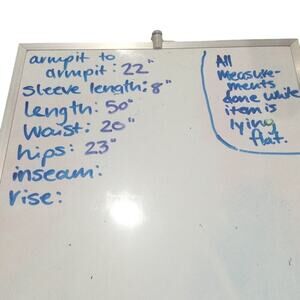 armpit to
armpit: 22"
sleeve length: 8"
Length: 50"
Waist: 20"
hips: 23"
inseam:
rise:
All
Measure-
ments
done while
item is
lying
flat.